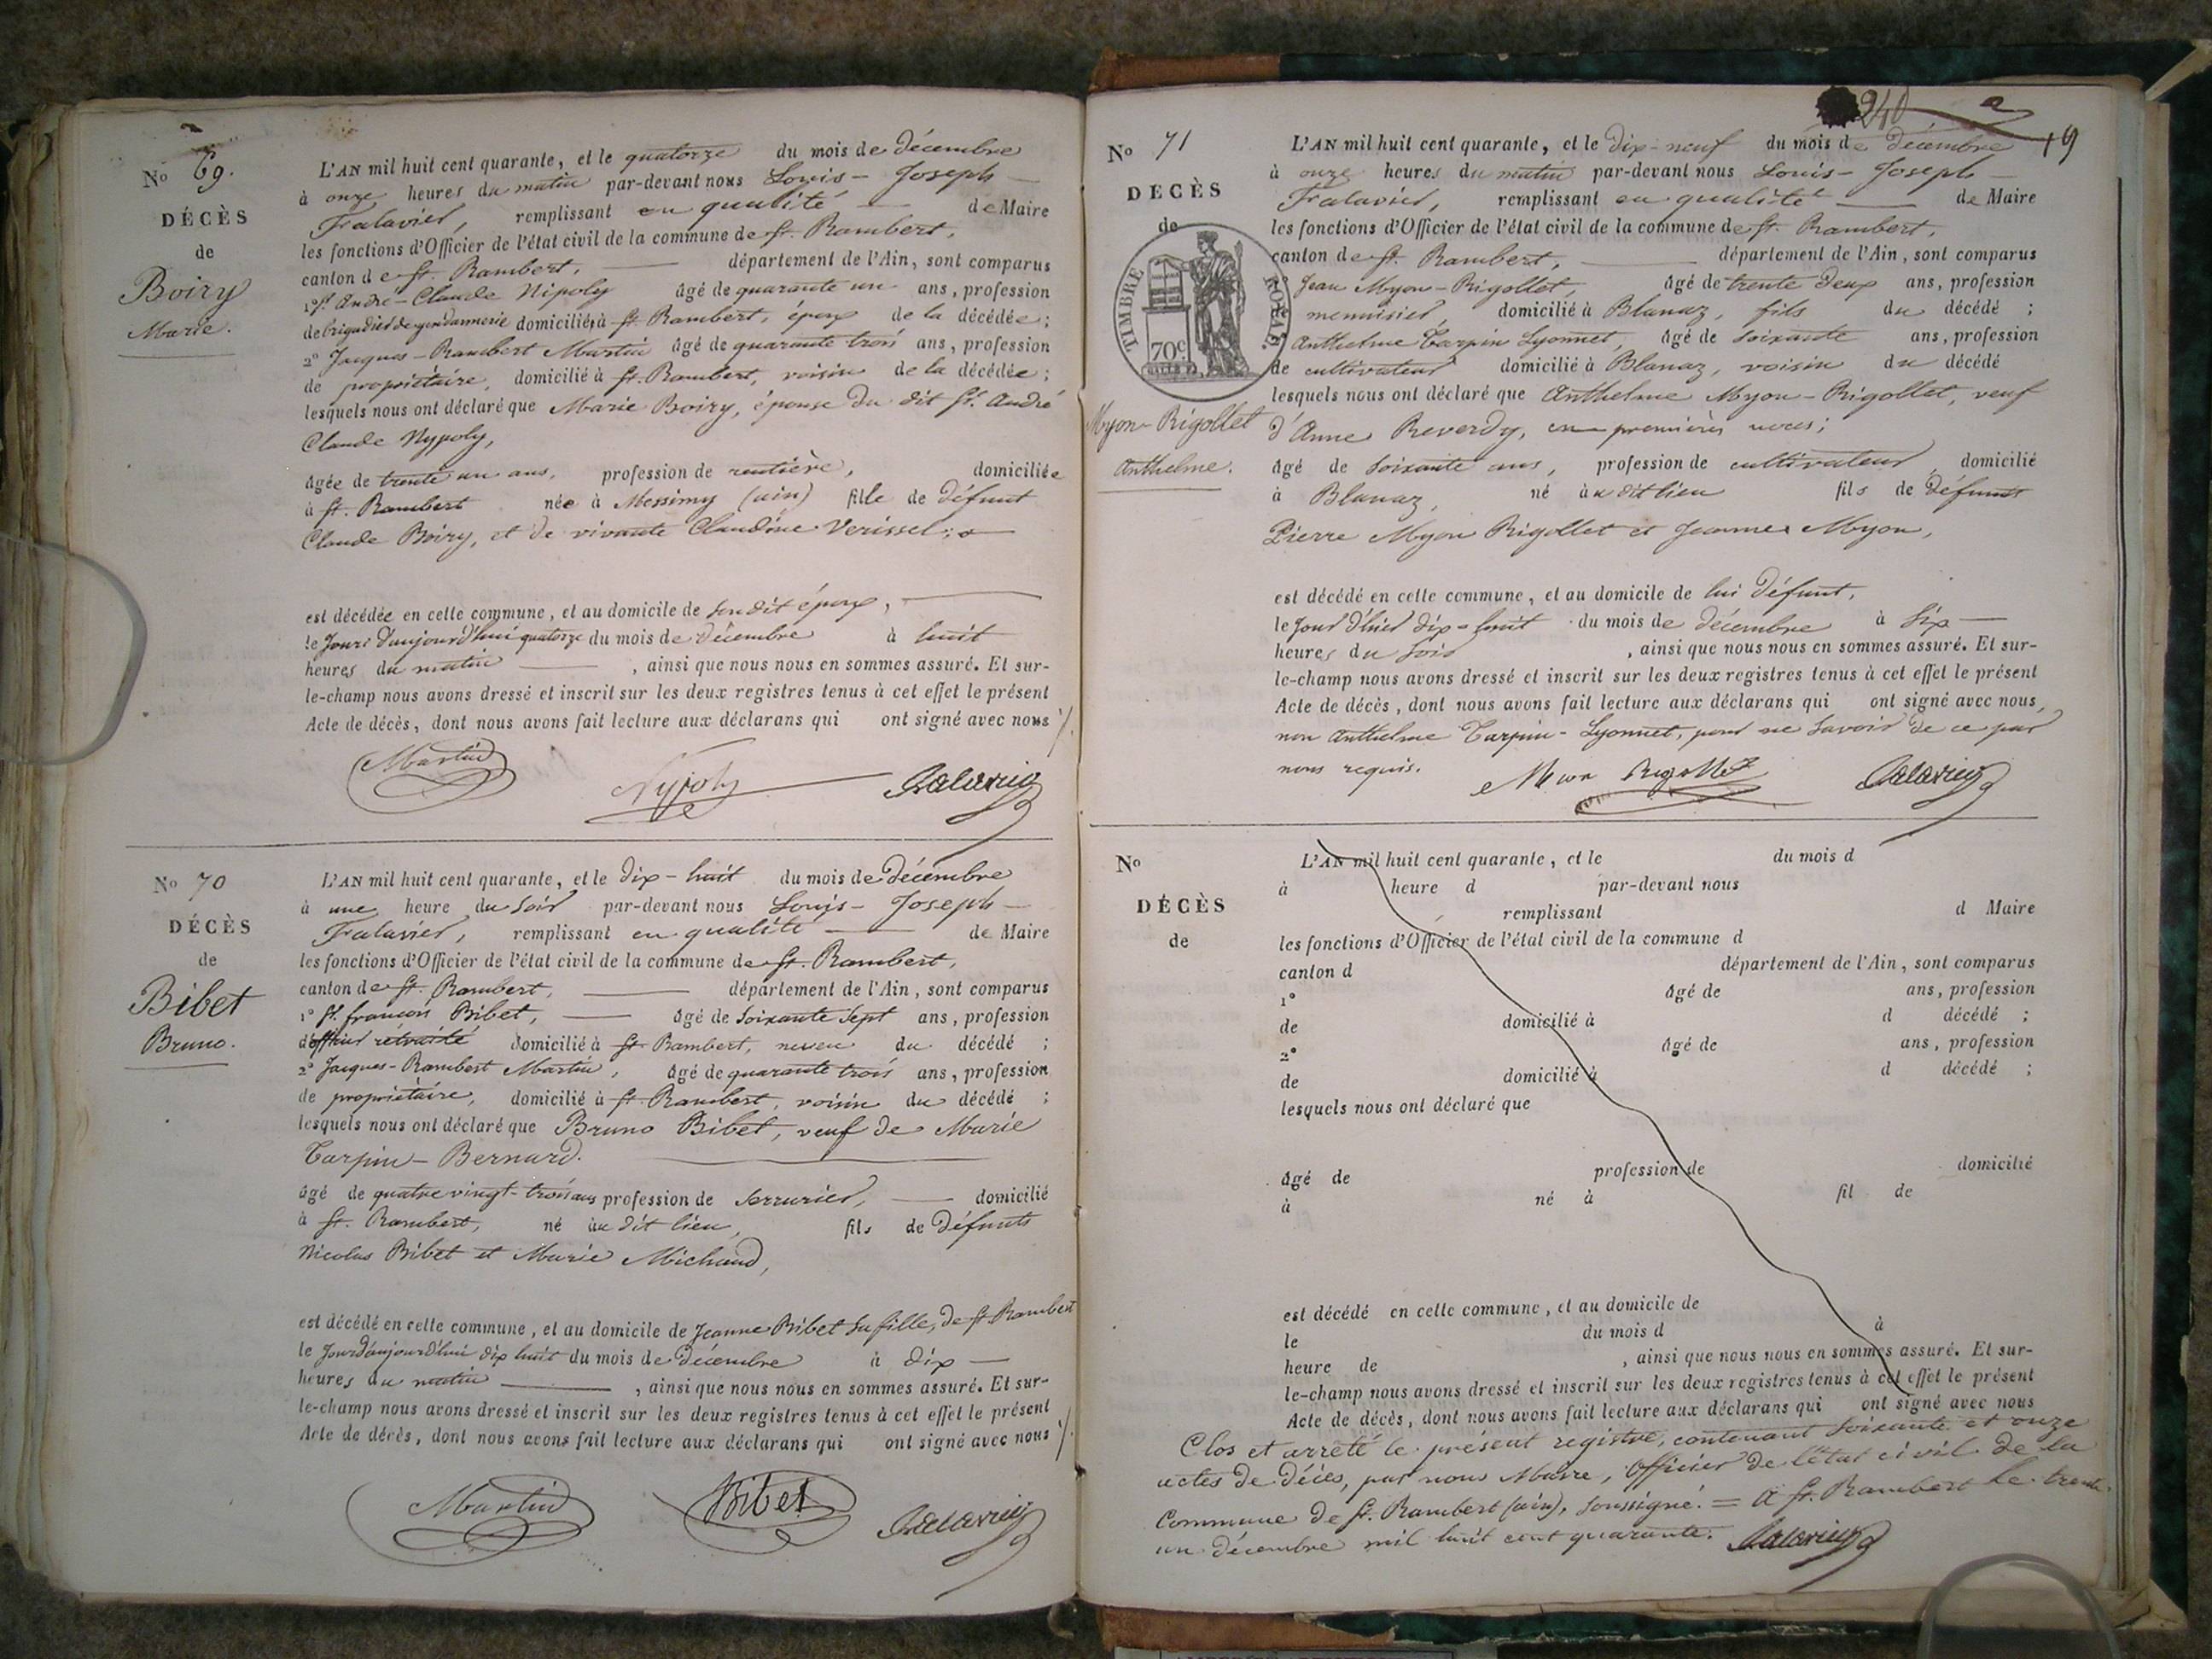 No 69.
DÉCÈS
de
Boiry
Marie.
L'AN mil huit cent quarante, et le quatorze du mois de Décembre
à onze heures du matin par-devant nous Louis-Joseph
Falavier, remplissant en qualité de Maire
les fonctions d'Officier de l'état civil de la commune de St. Rambert,
canton de St. Rambert, département de l'Ain, sont comparus
1° Sr. André-Claude Nipoly âgé de quarante un ans, profession
de brigadier de gendarmerie domicilié à St. Rambert, époux de la décédée ;
2° Jacques-Rambert Martin âgé de quarante trois ans, profession
de propriétaire, domicilié à St. Rambert, voisin de la décédée ;
lesquels nous ont déclaré que Marie Boiry, épouse du dit Sr. André
Claude Nypoly,
âgée de trente un ans, profession de rentière, domiciliée
à St. Rambert née à Messimy (ain) fille de Défunt
Claude Boiry, et de vivante Claudine Verissel ;
est décédée en cette commune, et au domicile de son dit époux,
le Jour d'aujourd'hui quatorze du mois de Décembre à huit
heures du matin , ainsi que nous nous en sommes assuré. Et sur-
le-champ nous avons dressé et inscrit sur les deux registres tenus à cet effet le présent
Acte de décès, dont nous avons fait lecture aux déclarans qui ont signé avec nous
Martin Nypoly Falavier
No 70
DÉCÈS
de
Bibet
Bruno.
L'AN mil huit cent quarante, et le dix-huit du mois de Décembre
à une heure du soir par-devant nous Louis-Joseph
Falavier, remplissant en qualité de Maire
les fonctions d'Officier de l'état civil de la commune de St. Rambert,
canton de St. Rambert, département de l'Ain, sont comparus
1° Sr. françois Bibet, âgé de soixante sept ans, profession
d'officier retraité domicilié à St. Rambert, neveu du décédé ;
2° Jacques-Rambert Martin, âgé de quarante trois ans, profession
de propriétaire, domicilié à St. Rambert, voisin du décédé ;
lesquels nous ont déclaré que Bruno Bibet, veuf de Marie
Tarpin-Bernard.
âgé de quatre vingt-trois ans profession de serrurier, domicilié
à St. Rambert, né au dit lieu, fils de Défunts
Nicolas Bibet et Marie Michaud,
est décédé en cette commune, et au domicile de Jeanne Bibet sa fille, de St Rambert
le Jour d'aujourd'hui dix huit du mois de Décembre à dix
heures du matin , ainsi que nous nous en sommes assuré. Et sur-
le-champ nous avons dressé et inscrit sur les deux registres tenus à cet effet le présent
Acte de décès, dont nous avons fait lecture aux déclarans qui ont signé avec nous
Martin Bibet Falavier
240
19
No 71
DÉCÈS
de
TIMBRE ROYAL.
70c
Myon-Rigollet
Anthelme.
L'AN mil huit cent quarante, et le dix-neuf du mois de Décembre
à onze heures du matin par-devant nous Louis-Joseph
Falavier, remplissant en qualité de Maire
les fonctions d'Officier de l'état civil de la commune de St. Rambert,
canton de St. Rambert, département de l'Ain, sont comparus
Jean Myon-Rigollet, âgé de trente deux ans, profession
menuisier, domicilié à Blanaz, fils du décédé ;
Anthelme Tarpin Lyonnet, âgé de soixante ans, profession
de cultivateur domicilié à Blanaz, voisin du décédé
lesquels nous ont déclaré que Anthelme Myon-Rigollet, veuf
d'Anne Reverdy, en premières noces ;
âgé de soixante ans, profession de cultivateur, domicilié
à Blanaz, né au dit lieu fils de défunts
Pierre Myon Rigollet et Jeanne Myon,
est décédé en cette commune, et au domicile de lui Défunt,
le Jour d'hier dix-huit du mois de décembre à six
heures du soir , ainsi que nous nous en sommes assuré. Et sur-
le-champ nous avons dressé et inscrit sur les deux registres tenus à cet effet le présent
Acte de décès, dont nous avons fait lecture aux déclarans qui ont signé avec nous,
non Anthelme Tarpin-Lyonnet, pour ne savoir de ce par
nous requis. Mion Rigollet Falavier
No
DÉCÈS
de
L'AN mil huit cent quarante, et le du mois d
à heure d par-devant nous
remplissant d Maire
les fonctions d'Officier de l'état civil de la commune d
canton d département de l'Ain, sont comparus
1° âgé de ans, profession
de domicilié à d décédé ;
2° âgé de ans, profession
de domicilié à d décédé ;
lesquels nous ont déclaré que
âgé de profession de domicilié
à né à fil de
est décédé en cette commune, et au domicile de
le du mois d à
heure de , ainsi que nous nous en sommes assuré. Et sur-
le-champ nous avons dressé et inscrit sur les deux registres tenus à cet effet le présent
Acte de décès, dont nous avons fait lecture aux déclarans qui ont signé avec nous
Clos et arrêté le présent registre, contenant soixante et onze
actes de décès, par nous Maire, Officier de l'état civil de la
Commune de St. Rambert (ain), soussigné. = A St. Rambert le trente
un décembre mil huit cent quarante. Falavier